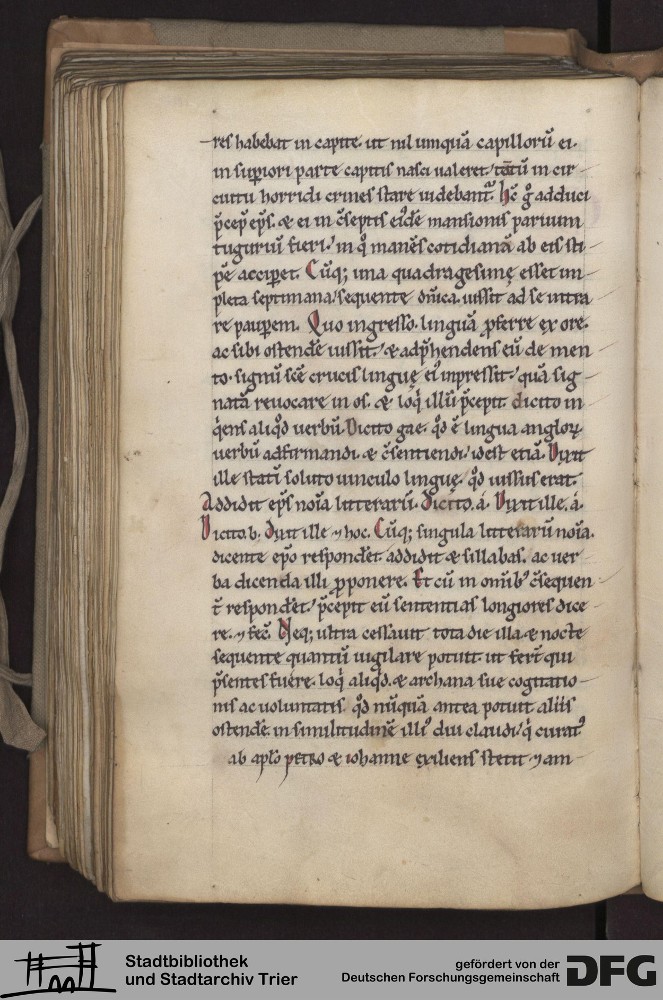 res habebat in capite. ut nil umquā capillorū ei.
in supiori parte capitis nasci ualeret. totū in cir
cuitu horridi crines stare uidebant͛. hc̄ g̊ adduci
p̄cep̄ ep̄s. & ei in c̄septis eiꝰdē mansionis paruum
tuguriū fieri. in q̊ manēs cotidianā ab eis sti
pē acciꝑet. Cūq; una quadragesimę esset im
pleta septimana. sequente dn̄ica. iussit ad se intra
re pauꝑem. Quo ingresso. linguā ꝓferre ex ore.
ac sibi ostendē iussit. & adp̄hendens eū de men
to. signū scē crucis linguę eiꝰ inpressit. quā sig
natā reuocare in os. & loq̇ illū p̄cepit. dicito in
q̇ens aliqd̄ uerbū. Dicito gae. qd̄ ē lingua angloꝝ
uerbū adfirmandi. & c̄sentiendi. idest etiā. Dixit
ille statī soluto uinculo linguę. qd̄ iussus erat.
Addidit ep̄s noīa litterarū. Dicito. á. Dixit ille. á.
Dicito. b. dixit ille ⁊ hoc. Cūq; singula litterarū noīa.
dicente ep̄o respondet͛. addidit & sillabas. ac uer
ba dicenda illi ꝓponere. Et cū in om̄ibꝰ c̄sequen
t͛ respondet͛. p̄cepit eū sententias longiores dice
re. ⁊ fec̄. Neq; ultra cessauit tota die illa & nocte
sequente quantū uigilare potuit. ut fert͛ qui
p̄sentes fuere. loq̇ aliqd̄. & archana sue cogitatio
nis ac uoluntatis. qd̄ nūquā antea potuit aliis
ostendē. in similitudinē illiꝰ diu claudi. q̇ curatꝰ
ab aplo petro & iohanne exiliens stetit ⁊ am
Stadtbibliothek
und Stadtarchiv Trier
gefördert von der
Deutschen Forschungsgemeinschaft
DFG